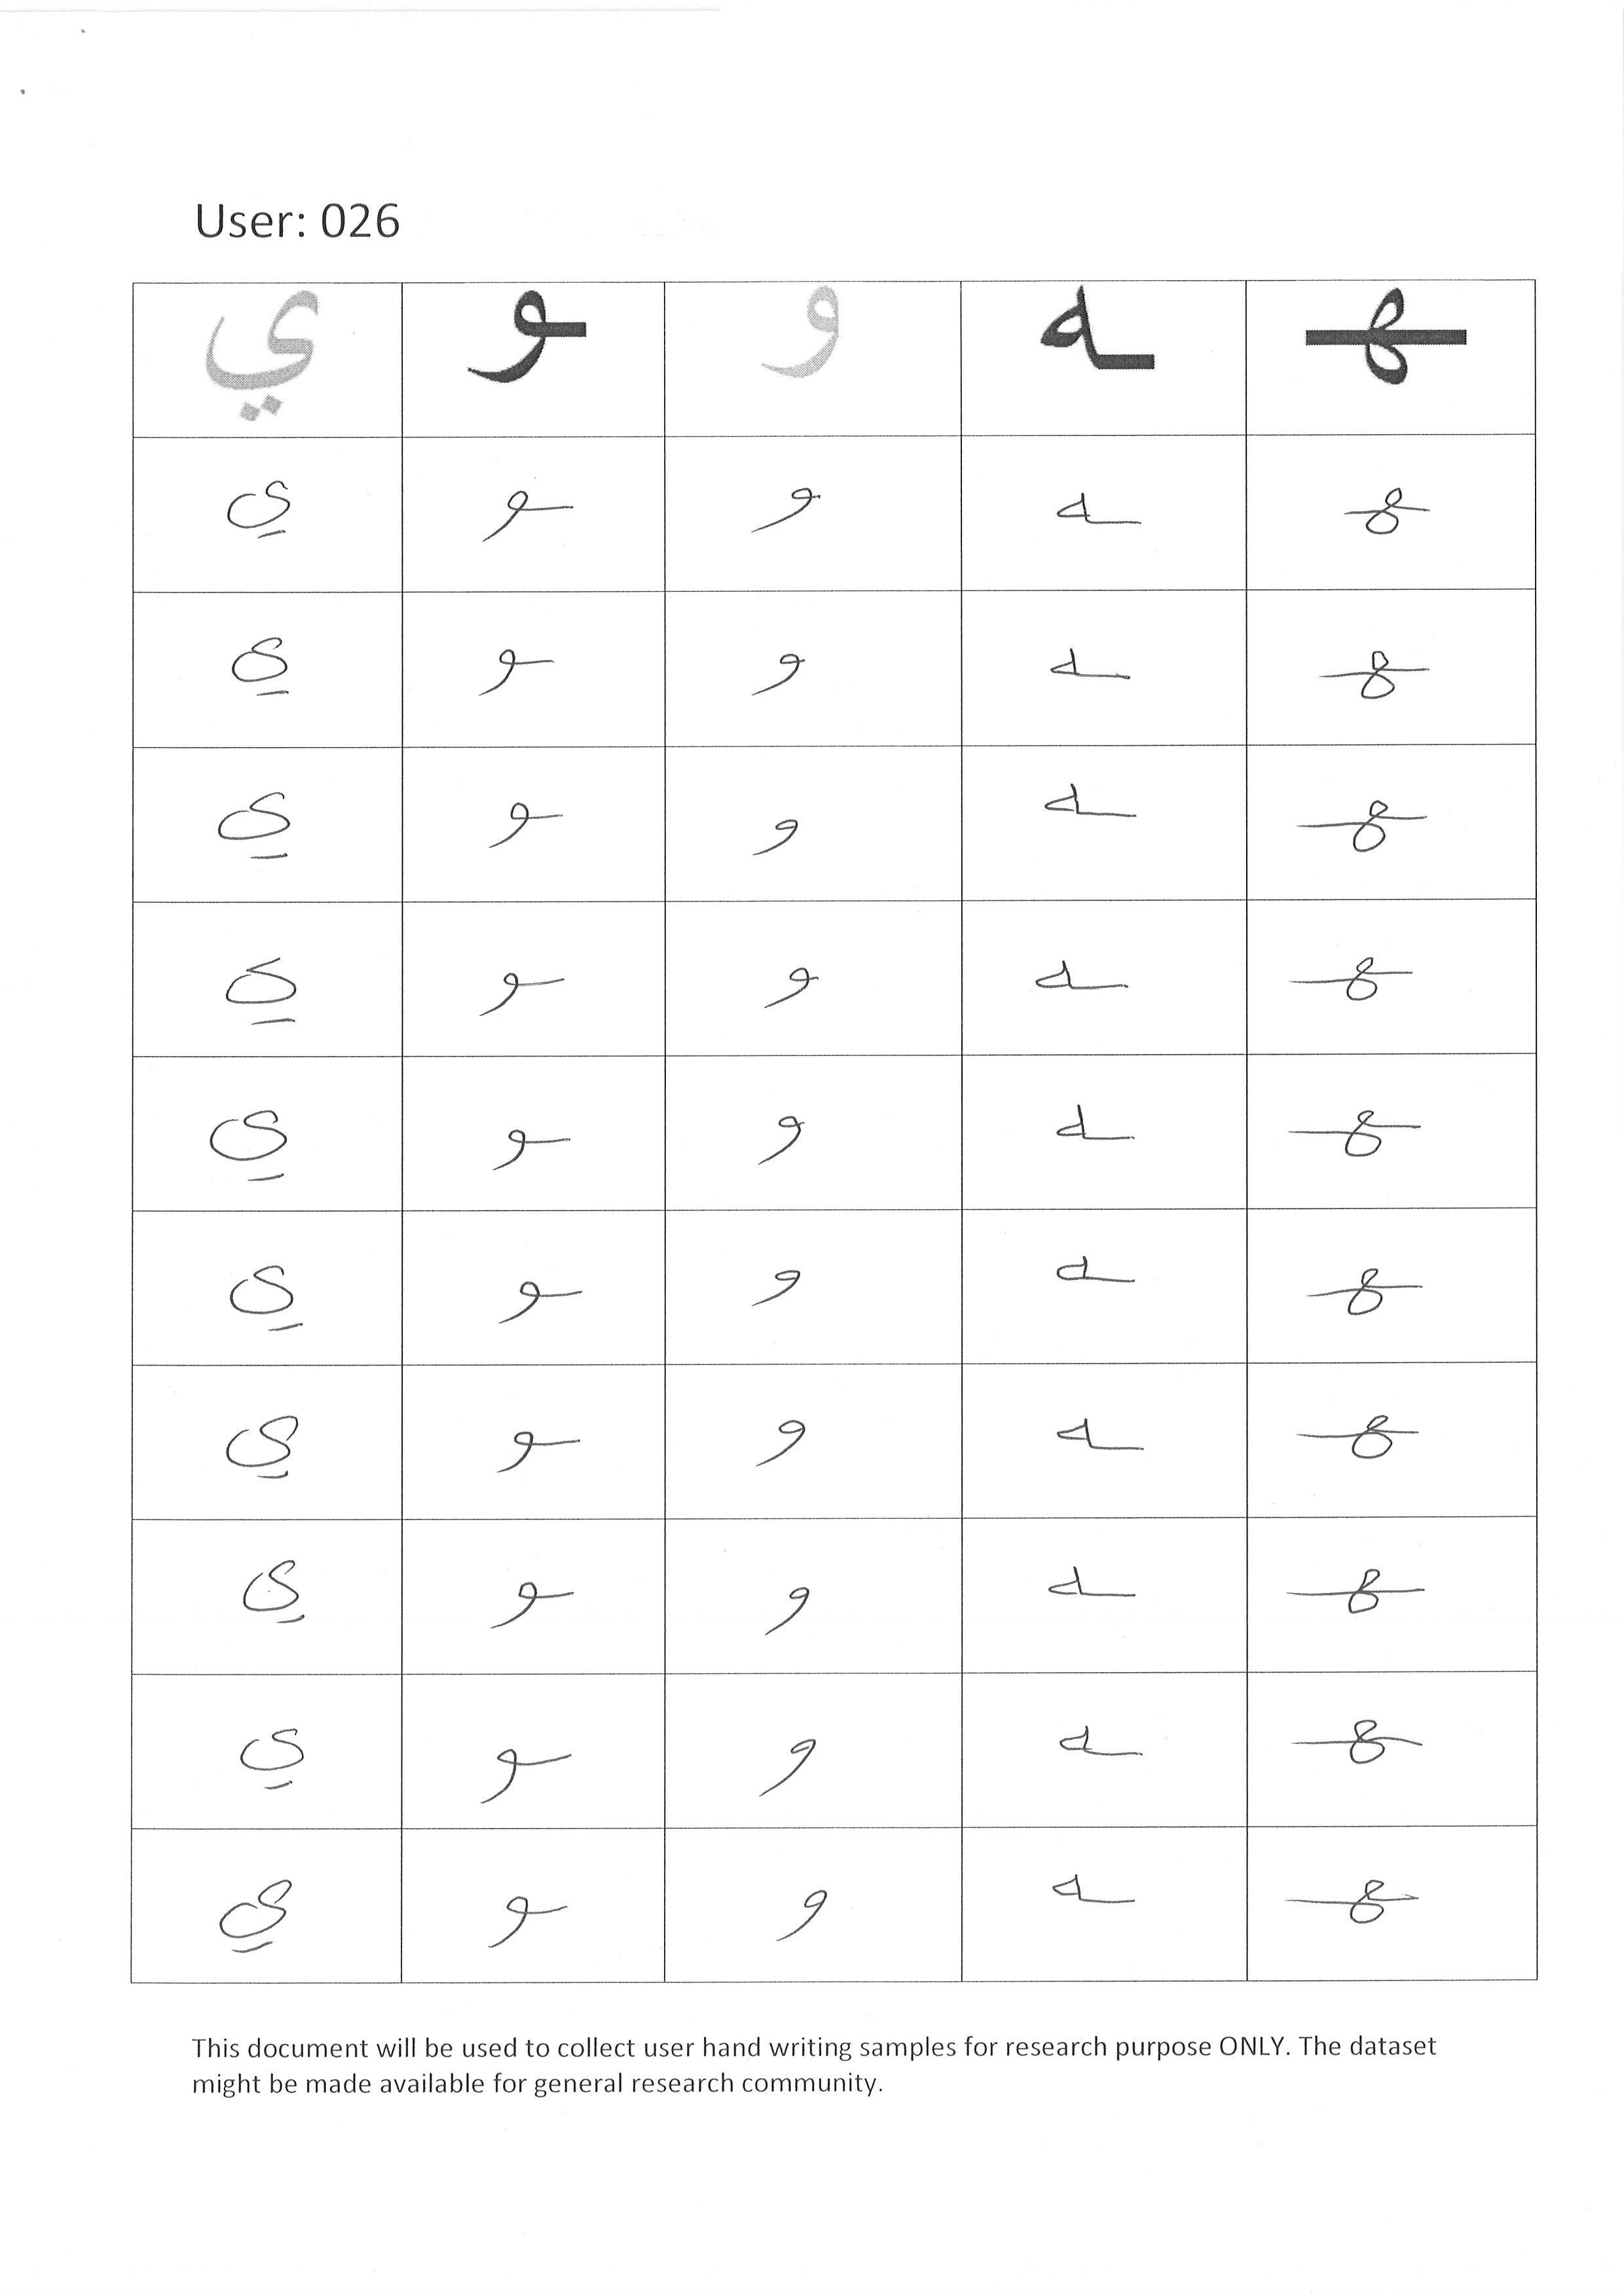 User: 026
ي ـو و ـه ـهـ
ي ـو و ـه ـهـ
ي ـو و ـه ـهـ
ي ـو و ـه ـهـ
ي ـو و ـه ـهـ
ي ـو و ـه ـهـ
ي ـو و ـه ـهـ
ي ـو و ـه ـهـ
ي ـو و ـه ـهـ
ي ـو و ـه ـهـ
ي ـو و ـه ـهـ
This document will be used to collect user hand writing samples for research purpose ONLY. The dataset
might be made available for general research community.